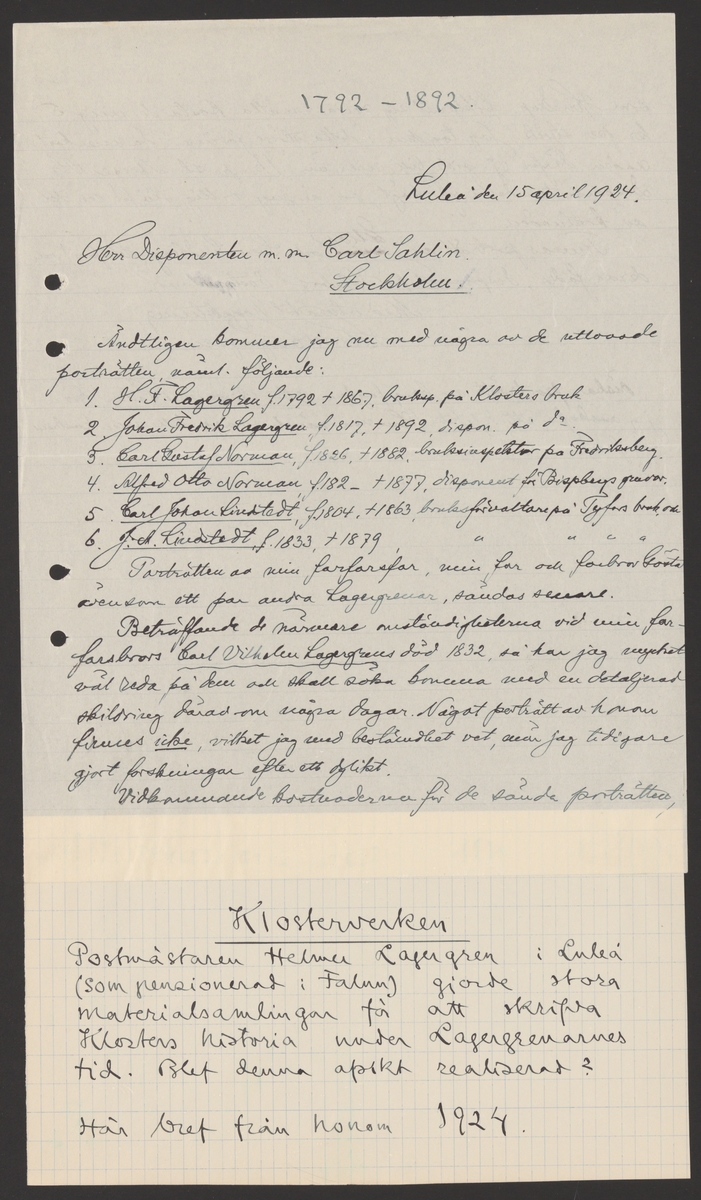 1792 – 1892.
Luleå den 15 april 1924.
Herr Disponenten m.m. Carl Sahlin.
Stockholm.
Ändtligen kommer jag nu med några av de utlovade
porträtten, näml. följande:
1. H. F. Lagergren, f. 1792 † 1867, bruksp. på Klosters bruk
2. Johan Fredrik Lagergren, f. 1817, † 1892, dispon. på do
3. Carl Gustaf Norman, f. 1826, † 1882, bruksinspektor på Fredriksberg.
4. Alfred Otto Norman, f. 182– † 1877, disponent för Bispbergs gruvor.
5. Carl Johan Lindstedt, f. 1804, † 1863, bruksförvaltare på Tyfors bruk, och
6. J. A. Lindstedt, f. 1833, † 1879, " " " "
Porträtten av min farfarsfar, min far och farbror Gösta
ävensom ett par andra Lagergrenar, sändas senare.
Beträffande de närmare omständigheterna vid min far-
farsbrors Carl Vilhelm Lagergrens död 1832, så har jag mycket
väl reda på dem och skall söka komma med en detaljerad
skildring därav om några dagar. Något porträtt av honom
finnes icke, vilket jag med bestämdhet vet, när jag tidigare
gjort forskningar efter ett dylikt.
Vidkommande kostnaderna för de sända porträtten,
Klosterverken
Postmästaren Helmer Lagergren i Luleå
(som pensionerad i Falun) gjorde stora
materialsamlingar för att skrifva
Klosters historia under Lagergrenarnes
tid. Blef denna afsikt realiserad?
Här bref från honom 1924.